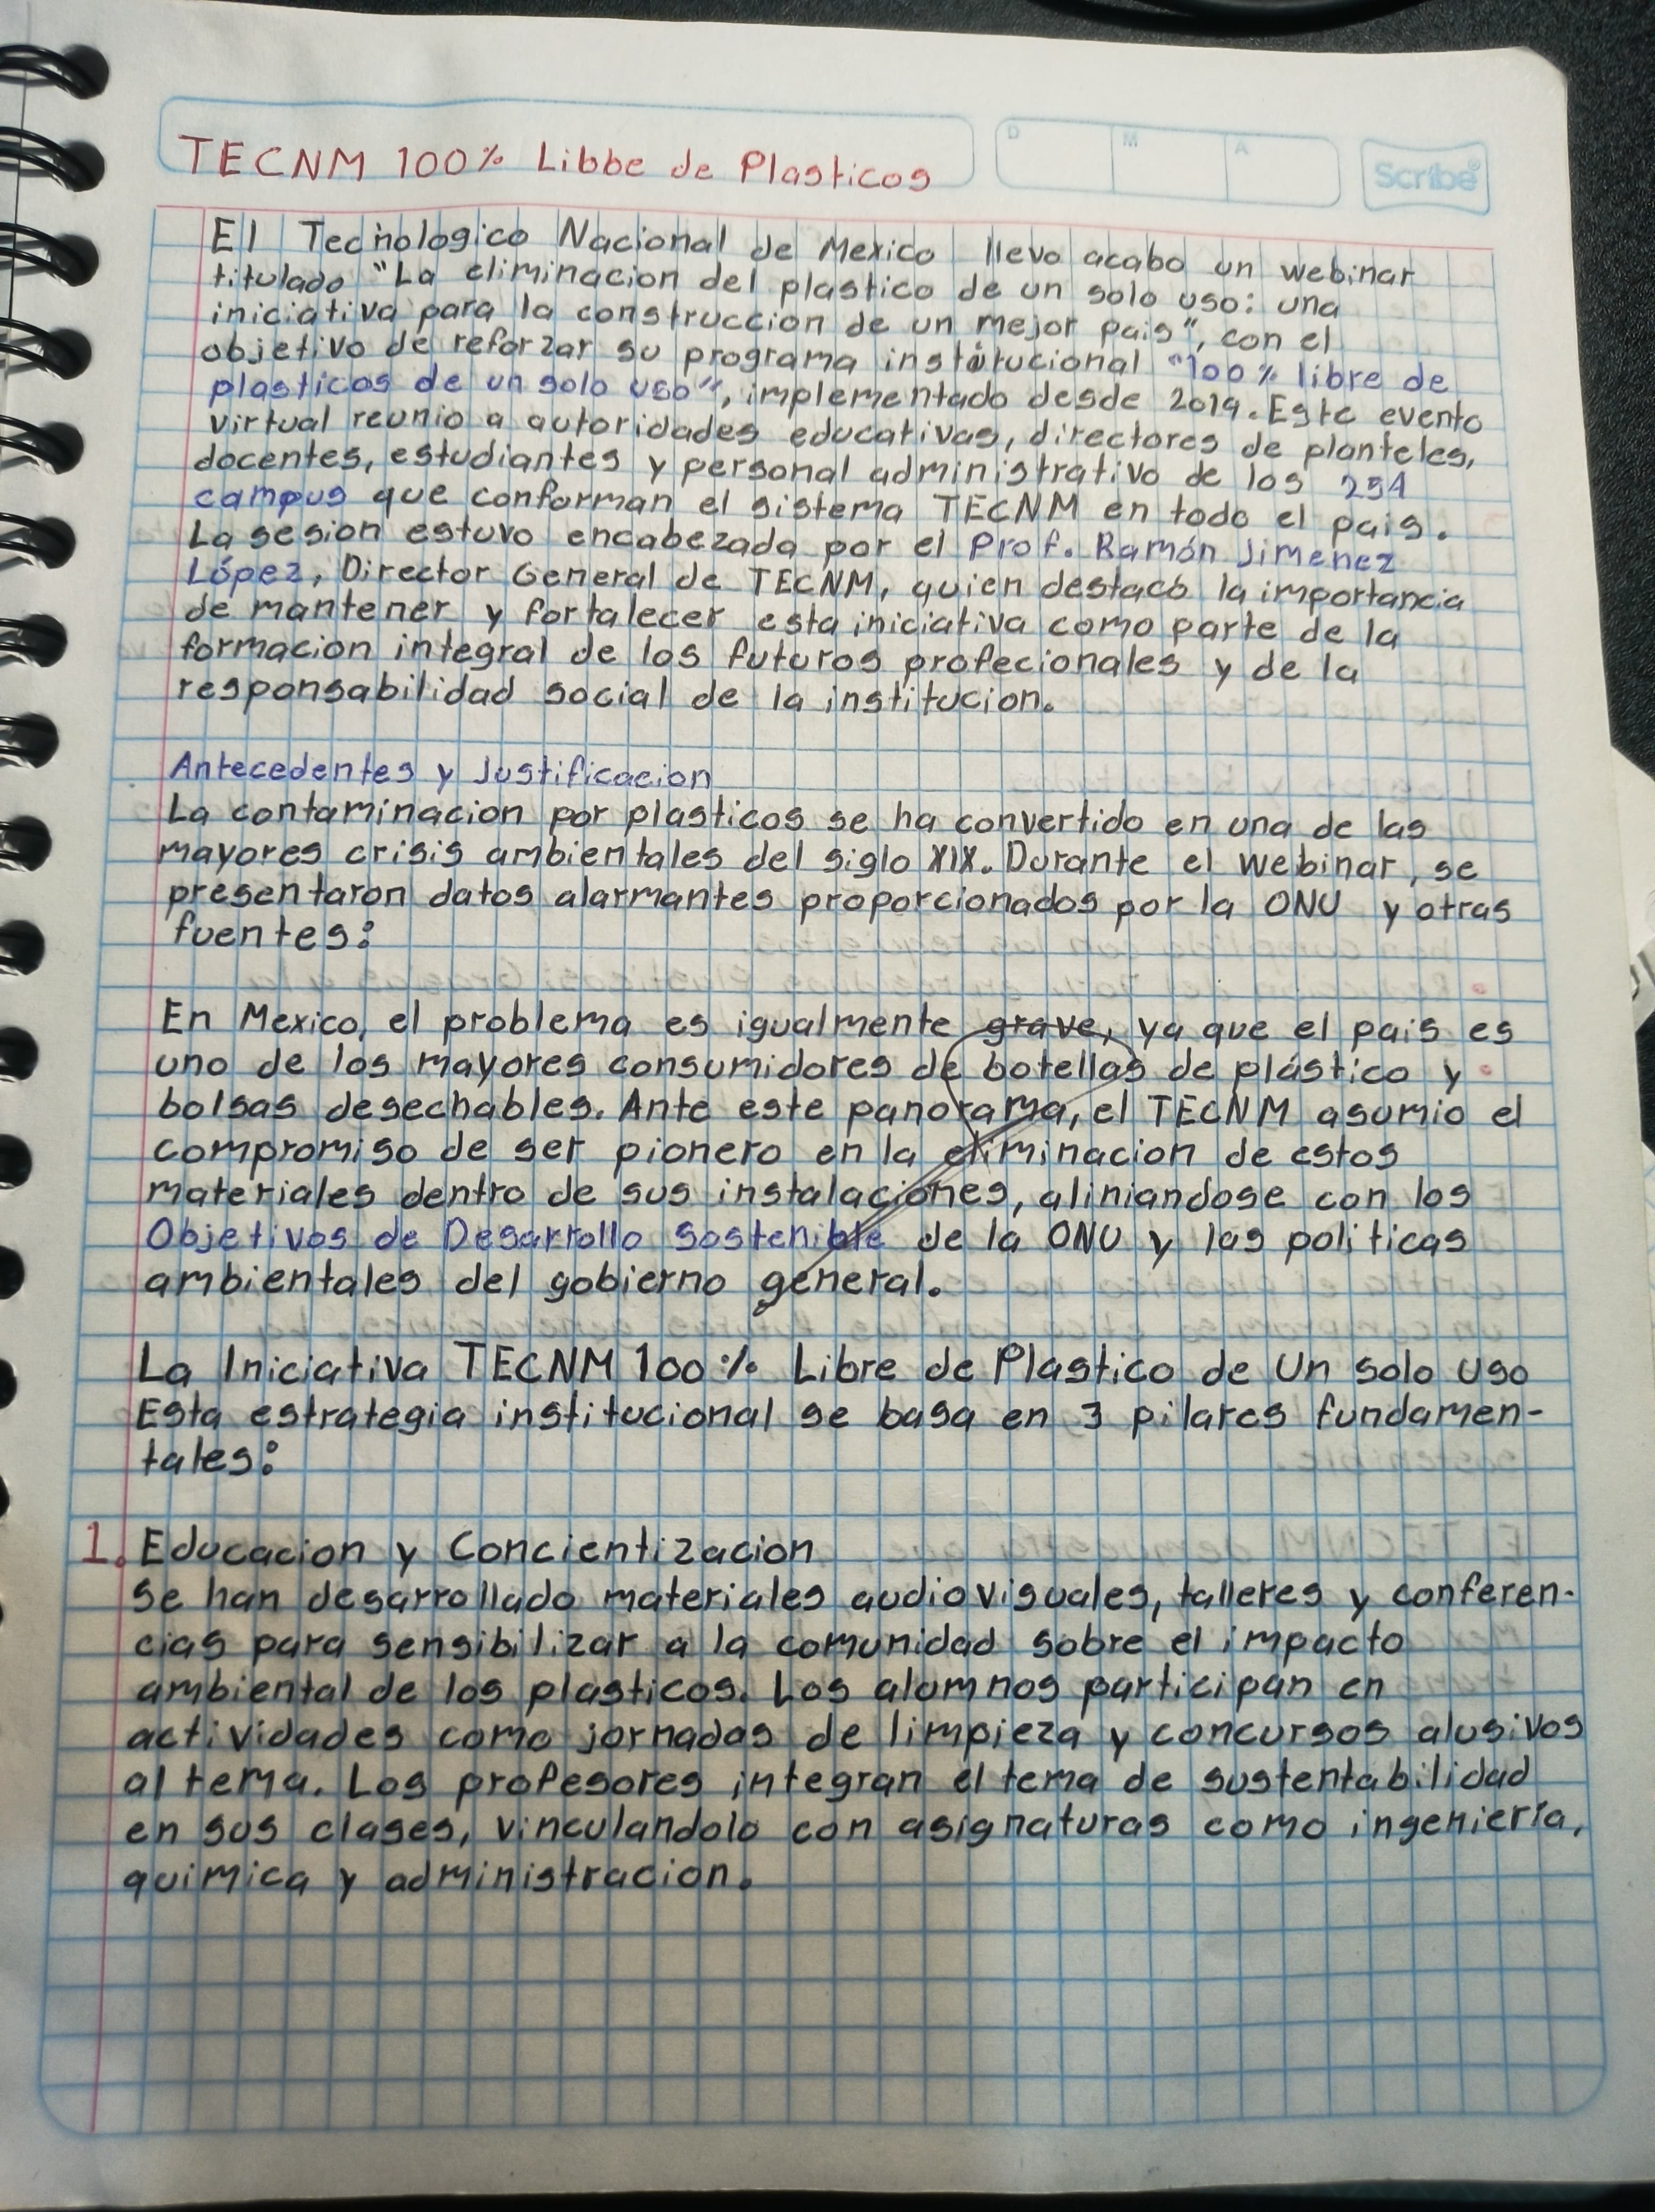 TECNM 100% Libbe de Plasticos
D M A
Scribe
El Tecnologico Nacional de Mexico llevo acabo un webinar
titulado "La eliminacion del plastico de un solo uso: una
iniciativa para la construccion de un mejor pais", con el
objetivo de reforzar su programa institucional "100% libre de
plasticos de un solo uso", implementado desde 2019. Este evento
virtual reunio a autoridades educativas, directores de planteles,
docentes, estudiantes y personal administrativo de los 254
campus que conforman el sistema TECNM en todo el pais.
La sesion estuvo encabezada por el Prof. Ramón Jimenez
López, Director General de TECNM, quien destacó la importancia
de mantener y fortalecer esta iniciativa como parte de la
formacion integral de los futuros profecionales y de la
responsabilidad social de la institucion.
Antecedentes y Justificacion
La contaminacion por plasticos se ha convertido en una de las
mayores crisis ambientales del siglo XIX. Durante el webinar, se
presentaron datos alarmantes proporcionados por la ONU y otras
fuentes:
En Mexico, el problema es igualmente grave, ya que el pais es
uno de los mayores consumidores de botellas de plástico y
bolsas desechables. Ante este panorama, el TECNM asumio el
compromiso de ser pionero en la eliminacion de estos
materiales dentro de sus instalaciones, aliniandose con los
Objetivos de Desarrollo Sostenible de la ONU y las politicas
ambientales del gobierno general.
La Iniciativa TECNM 100% Libre de Plastico de Un Solo Uso
Esta estrategia institucional se basa en 3 pilares fundamen-
tales:
1. Educacion y Concientizacion
Se han desarrollado materiales audiovisuales, talleres y conferen-
cias para sensibilizar a la comunidad sobre el impacto
ambiental de los plasticos. Los alumnos participan en
actividades como jornadas de limpieza y concursos alusivos
al tema. Los profesores integran el tema de sustentabilidad
en sus clases, vinculandolo con asignaturas como ingeniería,
quimica y administracion.